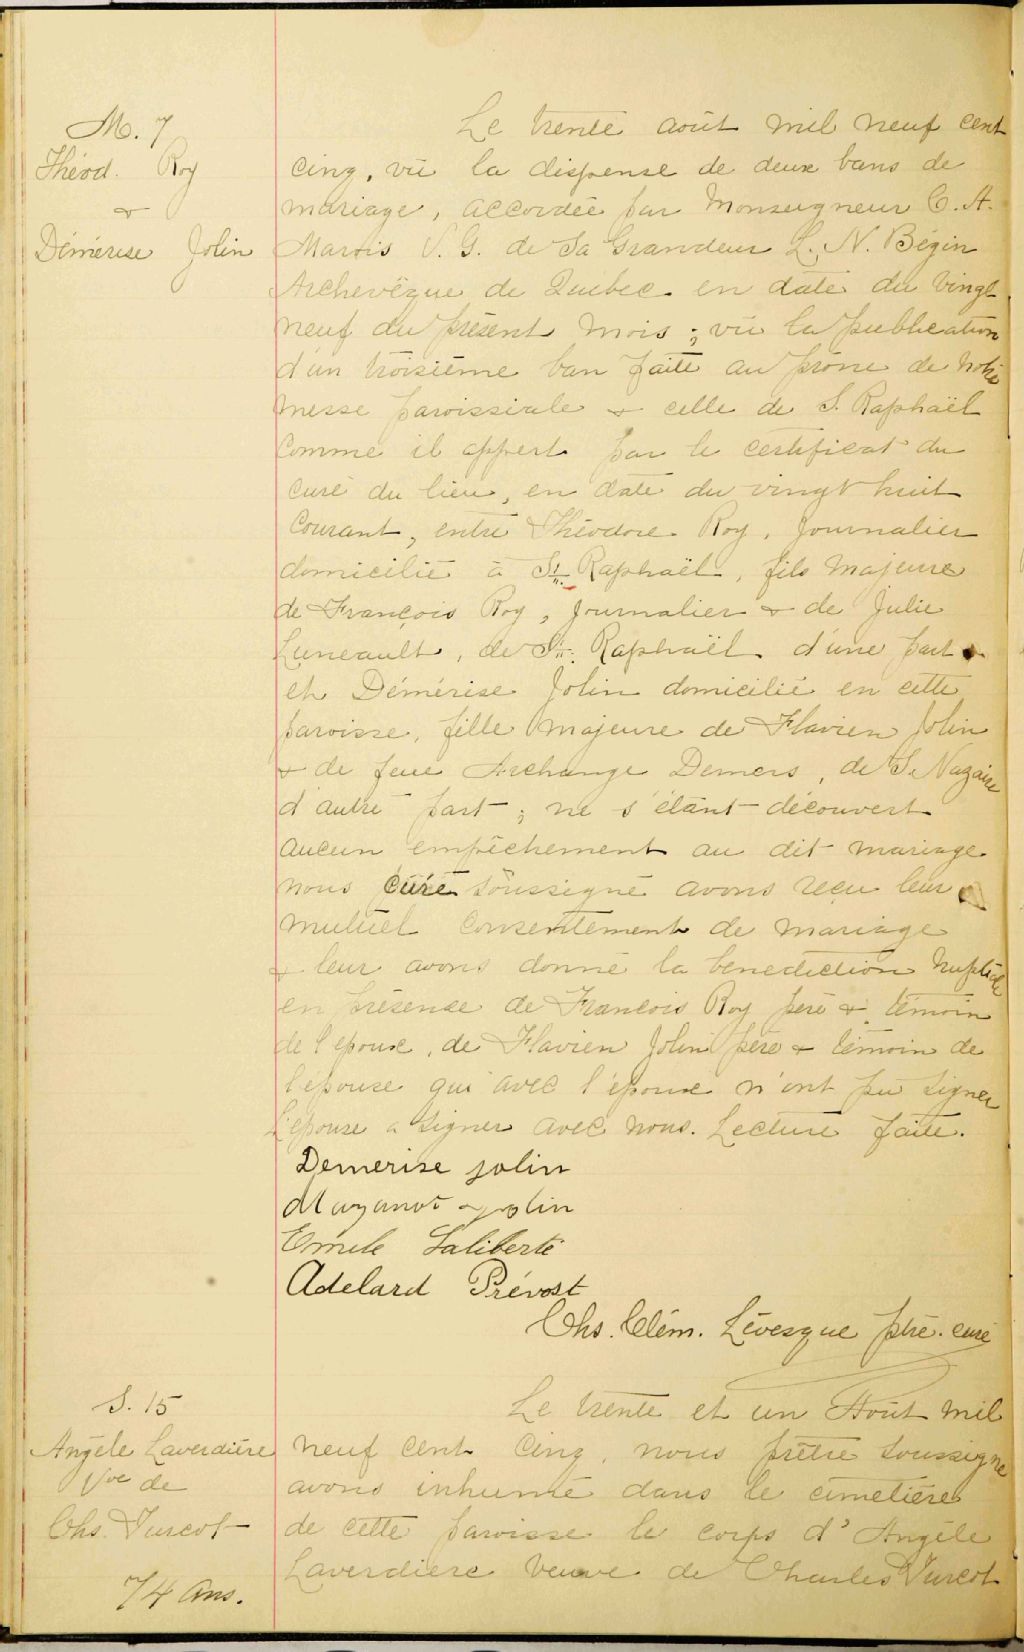 M. 7
Théod. Roy
&
Démérise Jolin
Le trente août mil neuf cent
cinq, vû la dispense de deux bans de
mariage, accordée par Monseigneur C. A.
Marois V. G. de Sa Grandeur L. N. Bégin
Archevêque de Québec en date du vingt
neuf du présent mois ; vû la publication
d'un troisième ban faite au prône de notre
messe paroissiale & celle de S. Raphaël
comme il appert par le certificat du
curé du lieu, en date du vingt huit
courant, entre Théodore Roy, journalier
domicilié à St. Raphaël, fils majeure
de François Roy, journalier & de Julie
Luneault, de St. Raphaël d'une part
et Démérise Jolin domicilié en cette
paroisse, fille majeure de Flavien Jolin
& de feue Archange Demers, de S. Nazaire
d'autre part ; ne s'étant découvert
aucun empêchement au dit mariage
nous curé soussigné avons reçu leur
mutuel consentement de mariage
& leur avons donné la bénédiction nuptiale
en présence de François Roy père & témoin
de l'époux, de Flavien Jolin père & témoin de
l'épouse qui avec l'époux n'ont pu signer
L'épouse a signer avec nous. Lecture faite.
Demerise jolin
jolin
Emile Laliberté
Adelard Prévost
Chs. Clém. Lévesque ptre. curé
S. 15
Angèle Laverdière
Vve de
Chs. Turcot
74 ans.
Le trente et un Août mil
neuf cent cinq, nous prêtre soussigné
avons inhumé dans le cimetière
de cette paroisse le corps d'Angèle
Laverdiere veuve de Charles Turcot